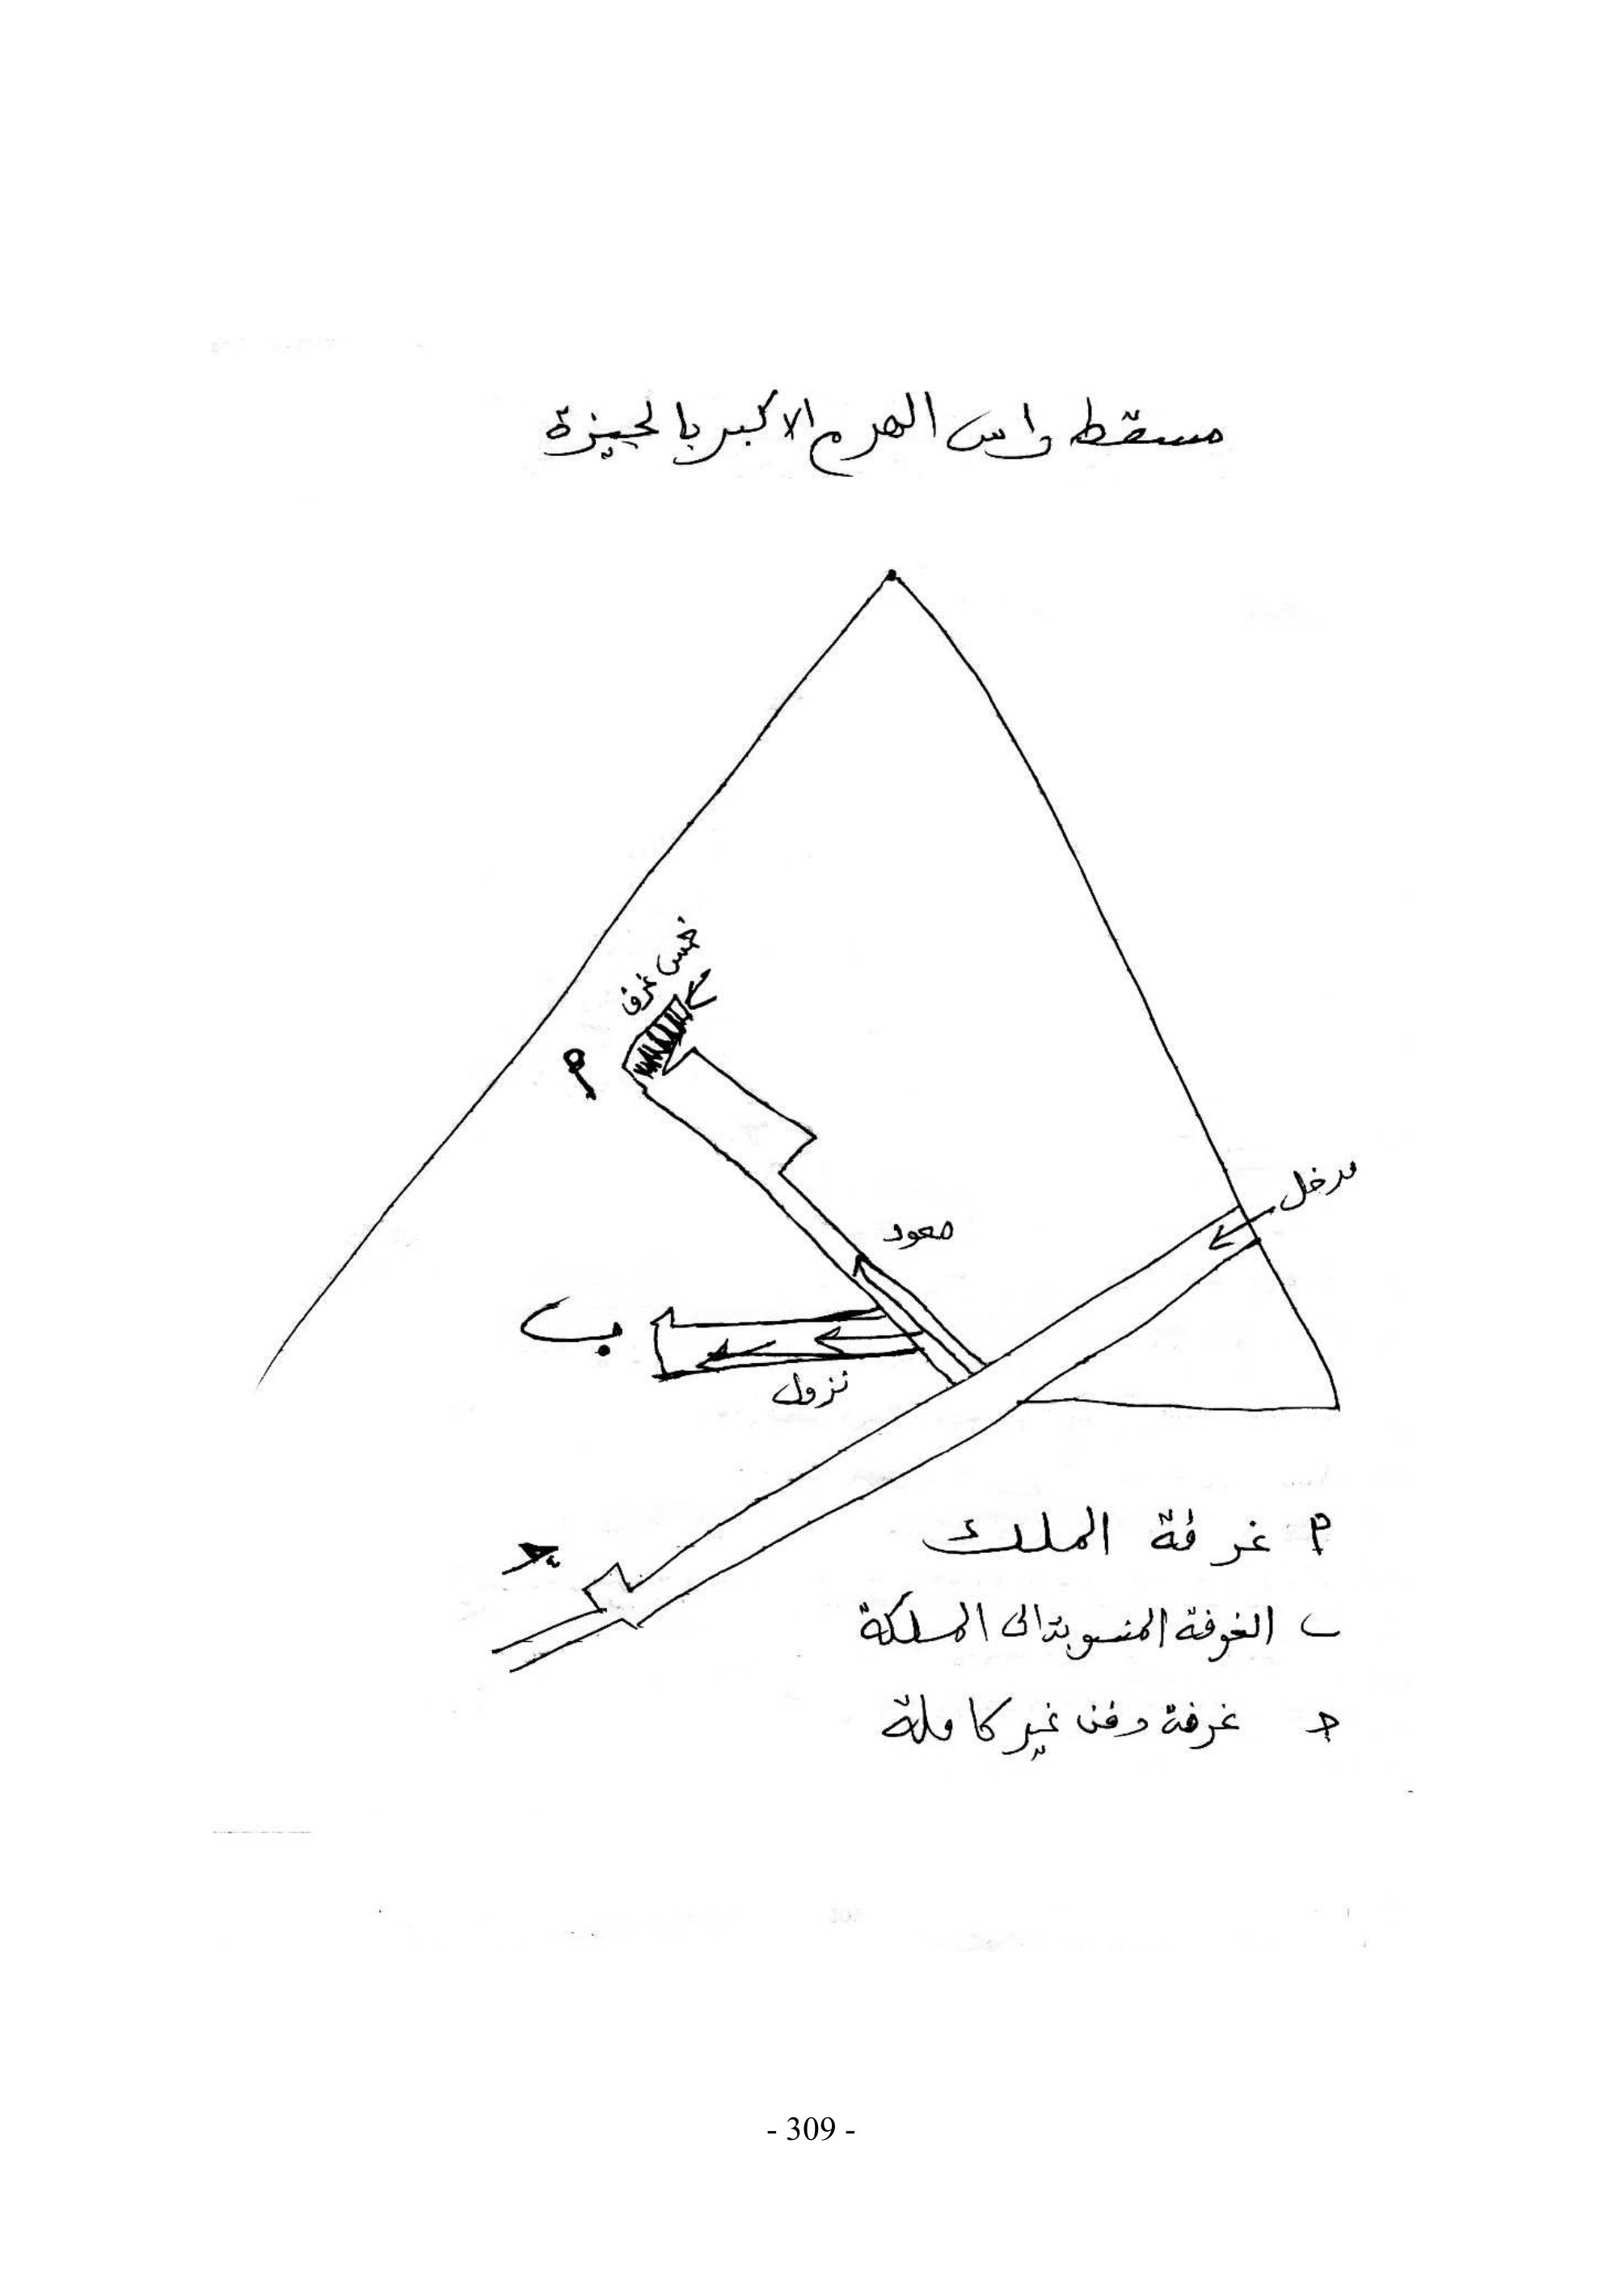 مسقط راس الهرم الاكبر بالجيزة
خمس غرف
م
مدخل
صعود
ب
نزول
ج
م غرفة الملك
ب الغرفة المنسوبة الى الملكة
ج غرفة دفن غير كاملة
- 309 -